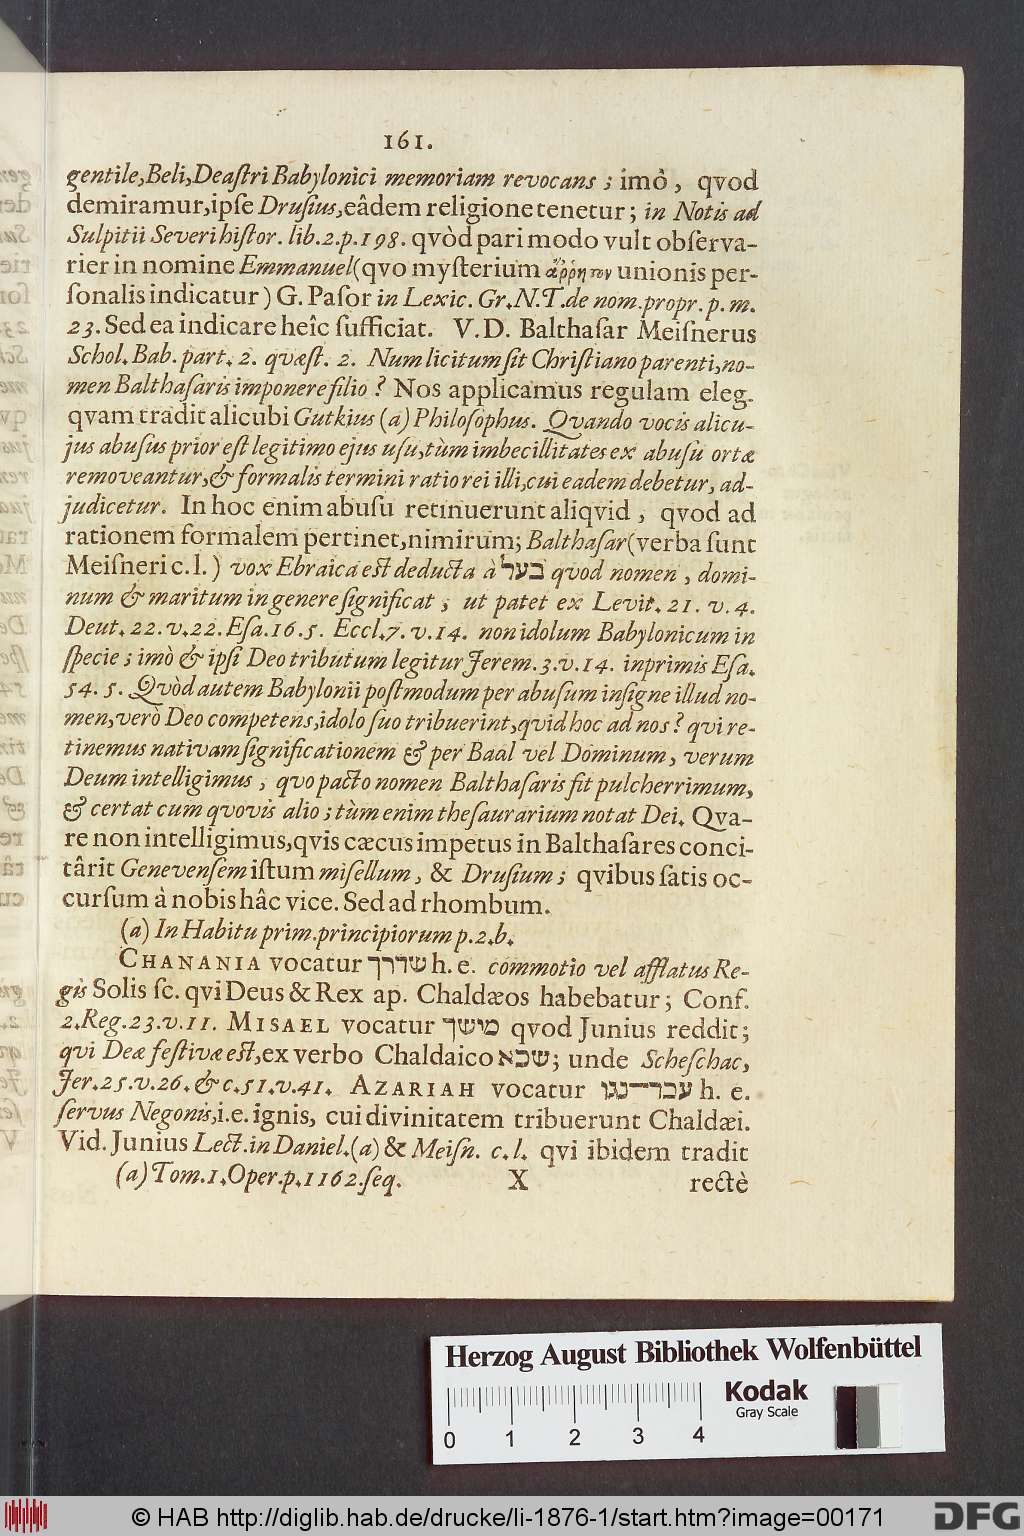 161.
gentile, Beli, Deaſtri Babylonici memoriam revocans ; imò, qvod
demiramur, ipſe Druſius, eâdem religione tenetur ; in Notis ad
Sulpitii Severi hiſtor. lib. 2. p. 198. qvòd pari modo vult obſerva-
rier in nomine Emmanuel (qvo myſterium ἄῤῥητον unionis per-
ſonalis indicatur ) G. Paſor in Lexic. Gr. N. T. de nom. propr. p. m.
23. Sed ea indicare heîc ſufficiat. V. D. Balthaſar Meiſnerus
Schol. Bab. part. 2. quæſt. 2. Num licitum ſit Chriſtiano parenti, no-
men Balthaſaris imponere filio ? Nos applicamus regulam eleg.
qvam tradit alicubi Gutkius (a) Philoſophus. Quando vocis alicu-
jus abuſus prior eſt legitimo ejus uſu, tùm imbecillitates ex abuſu ortæ
removeantur, & formalis termini ratio rei illi, cui eadem debetur, ad-
judicetur. In hoc enim abuſu retinuerunt aliqvid, qvod ad
rationem formalem pertinet, nimirum; Balthaſar (verba ſunt
Meiſneri c. l. ) vox Ebraica est deducta à בעל quod nomen, domi-
num & maritum in genere ſignificat, ut patet ex Levit. 21. v. 4.
Deut. 22. v. 22. Eſa. 16. 5. Eccl. 7. v. 14. non idolum Babylonicum in
ſpecie ; imò & ipſi Deo tributum legitur Jerem. 3. v. 14. inprimis Eſa.
54. 5. Quòd autem Babylonii poſtmodum per abuſum inſigne illud no-
men, verò Deo competens, idolo ſuo tribuerint, qvid hoc ad nos ? qui re-
tinemus nativam ſignificationem & per Baal vel Dominum, verum
Deum intelligimus, quo pacto nomen Balthaſaris fit pulcherrimum,
& certat cum quovis alio ; tùm enim theſaurarium notat Dei. Qva-
re non intelligimus, qvis cæcus impetus in Balthaſares conci-
târit Genevenſem iſtum miſellum, & Druſium ; qvibus ſatis oc-
curſum à nobis hâc vice. Sed ad rhombum.
(a) In Habitu prim. principiorum p. 2. b.
CHANANIA vocatur שדרך h. e. commotio vel afflatus Re-
gis Solis ſc. qvi Deus & Rex ap. Chaldæos habebatur ; Conf.
2. Reg. 23. v. 11. MISAEL vocatur מישך qvod Junius reddit ;
qui Deæ feſtivæ eſt, ex verbo Chaldaico שכא ; unde Scheſchac,
Jer. 25. v. 26. & c. 51. v. 41. AZARIAH vocatur עבד־נגו h. e.
ſervus Negonis, i. e. ignis, cui divinitatem tribuerunt Chaldæi.
Vid. Junius Lect. in Daniel. (a) & Meiſn. c. l. qvi ibidem tradit
(a) Tom. 1. Oper. p. 1162. ſeq. X rectè
Herzog August Bibliothek Wolfenbüttel
Kodak
Gray Scale
0 1 2 3 4
© HAB http://diglib.hab.de/drucke/li-1876-1/start.htm?image=00171
DFG